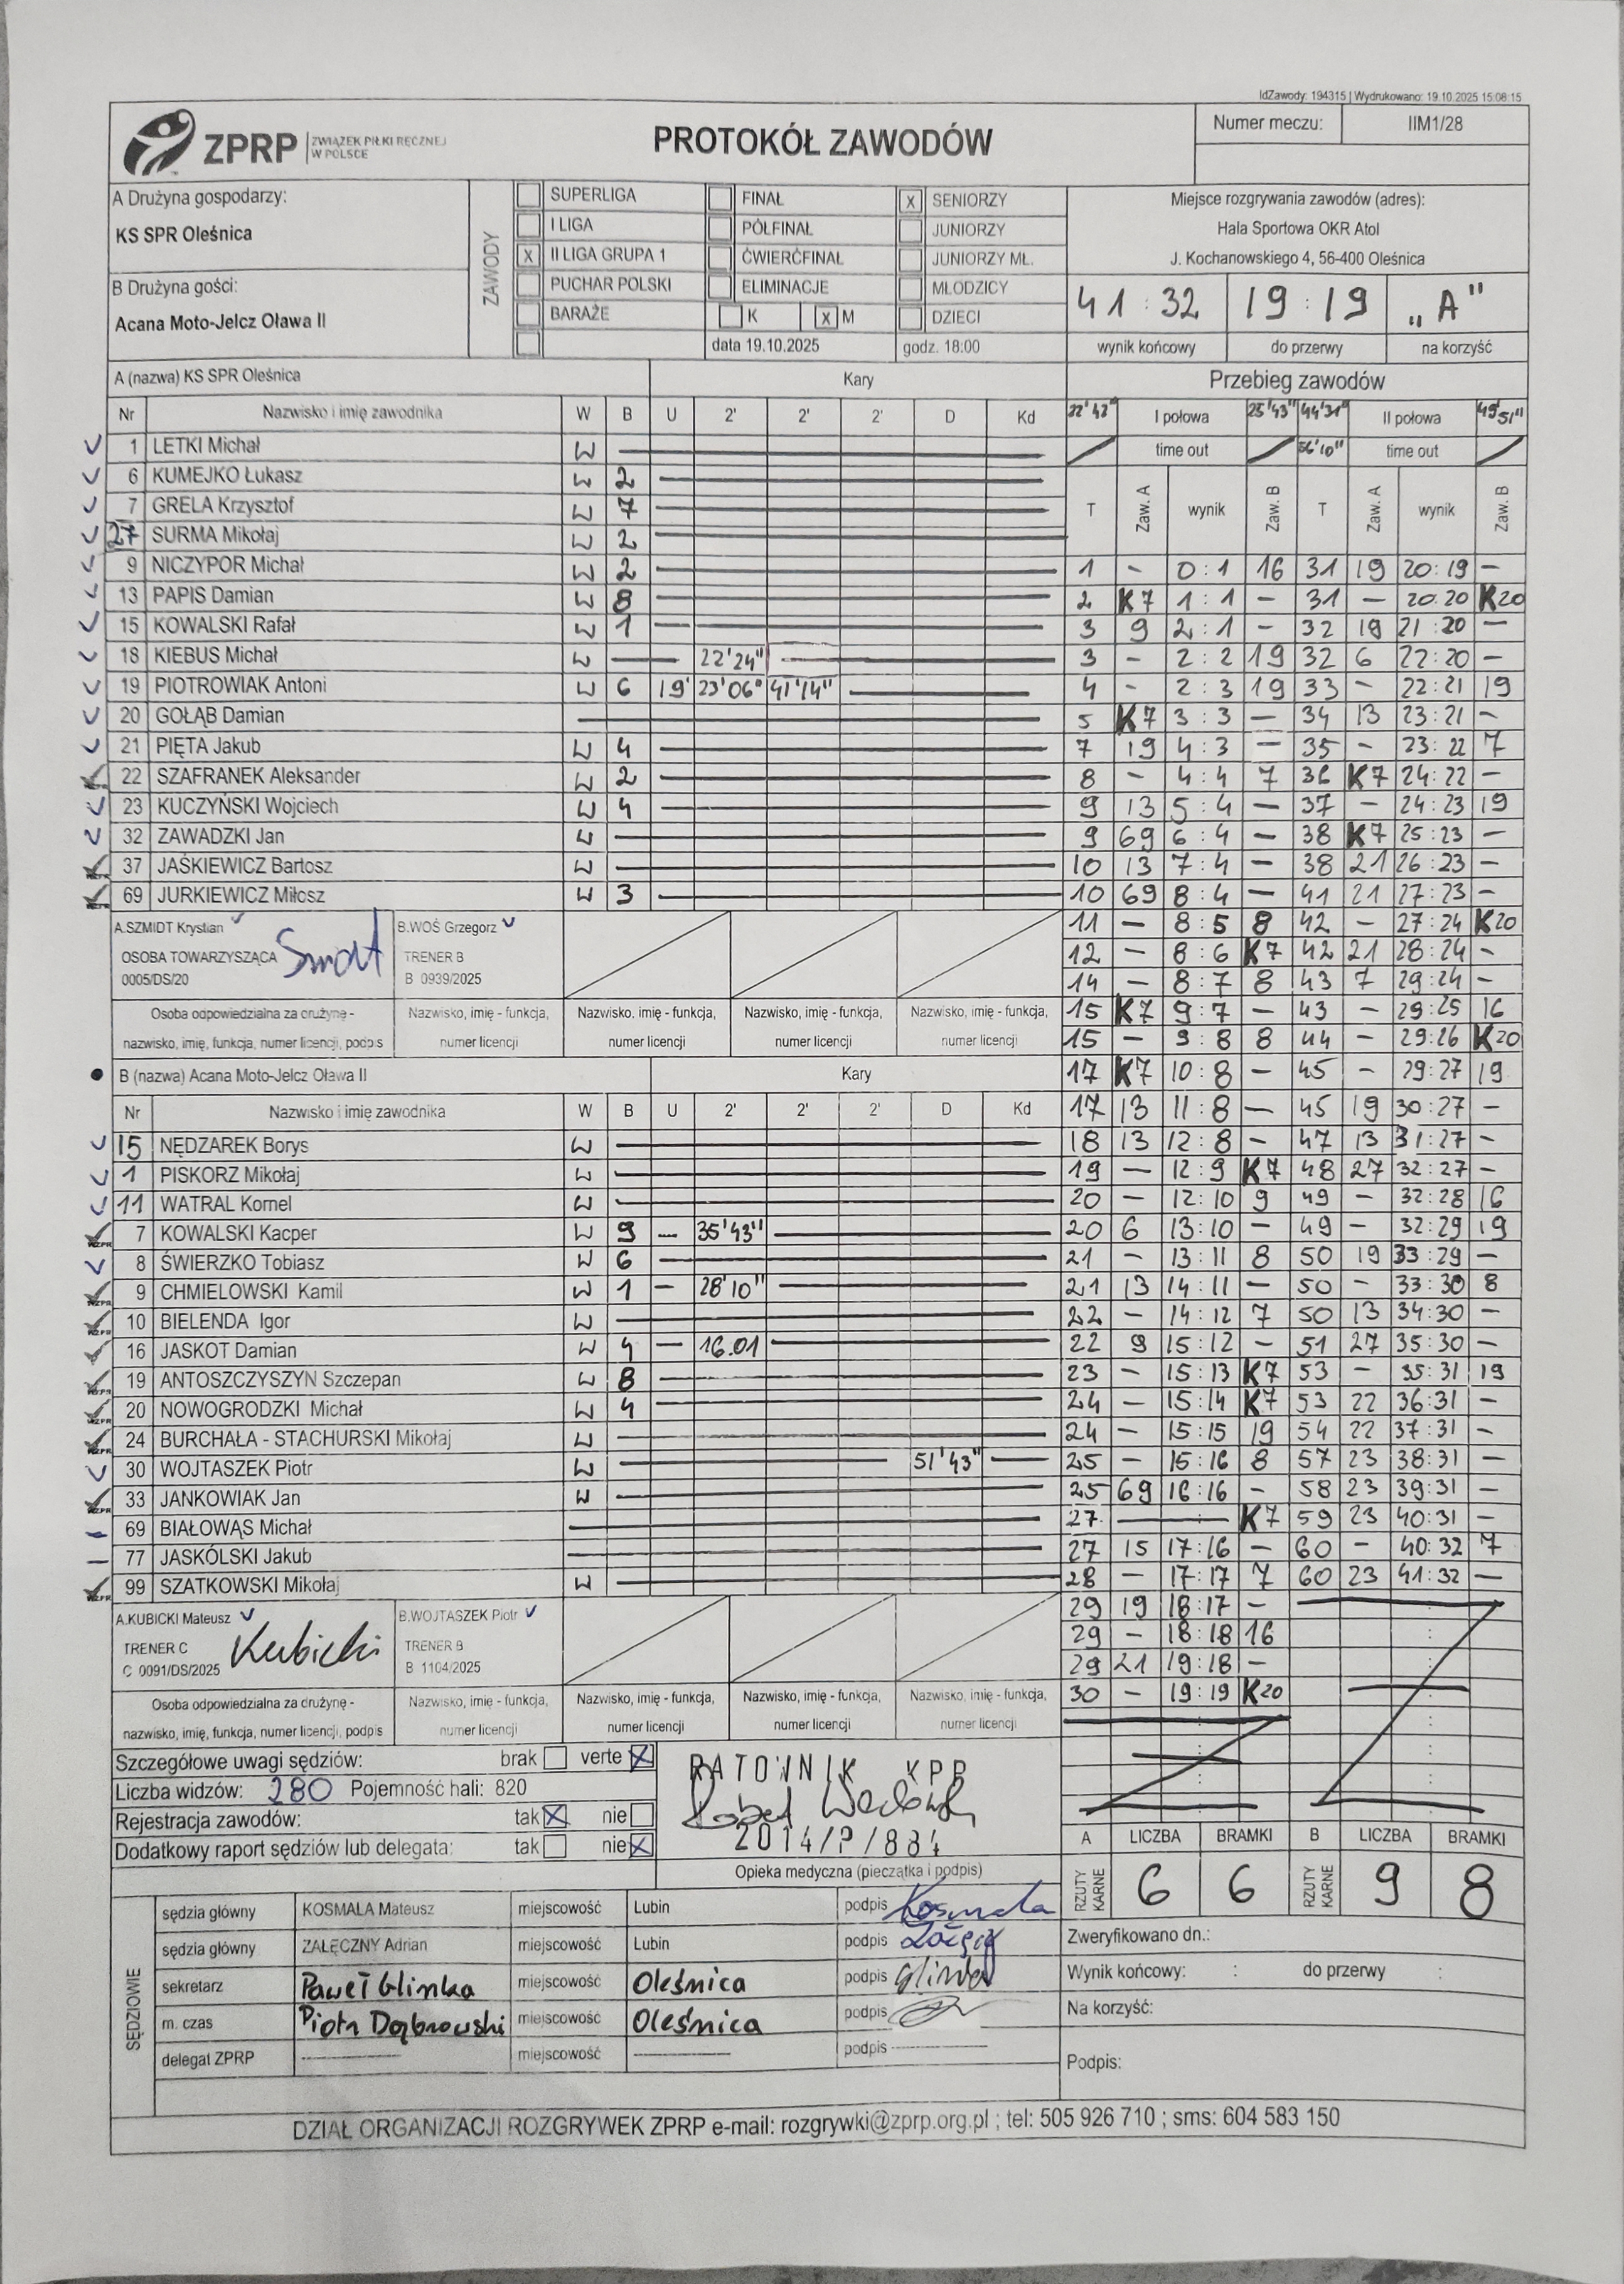 IdZawody: 194315 | Wydrukowano: 19.10.2025 15:08:15
ZPRP ZWIĄZEK PIŁKI RĘCZNEJ W POLSCE
PROTOKÓŁ ZAWODÓW
Numer meczu: IIM1/28
A Drużyna gospodarzy:
KS SPR Oleśnica
B Drużyna gości:
Acana Moto-Jelcz Oława II
ZAWODY
SUPERLIGA
I LIGA
X II LIGA GRUPA 1
PUCHAR POLSKI
BARAŻE
FINAŁ
PÓŁFINAŁ
ĆWIERĆFINAŁ
ELIMINACJE
K X M
data 19.10.2025
X SENIORZY
JUNIORZY
JUNIORZY MŁ.
MŁODZICY
DZIECI
godz. 18:00
Miejsce rozgrywania zawodów (adres):
Hala Sportowa OKR Atol
J. Kochanowskiego 4, 56-400 Oleśnica
41 : 32 19 : 19 „A"
wynik końcowy do przerwy na korzyść
A (nazwa) KS SPR Oleśnica Kary
Nr Nazwisko i imię zawodnika W B U 2' 2' 2' D Kd
1 LETKI Michał W
6 KUMEJKO Łukasz W 2
7 GRELA Krzysztof W 7
27 SURMA Mikołaj W 2
9 NICZYPOR Michał W 2
13 PAPIS Damian W 8
15 KOWALSKI Rafał W 1
18 KIEBUS Michał W — 22'24"
19 PIOTROWIAK Antoni W 6 19' 23'06" 41'14"
20 GOŁĄB Damian
21 PIĘTA Jakub W 4
22 SZAFRANEK Aleksander W 2
23 KUCZYŃSKI Wojciech W 4
32 ZAWADZKI Jan W
37 JAŚKIEWICZ Bartosz W
69 JURKIEWICZ Miłosz W 3
A.SZMIDT Krystian
OSOBA TOWARZYSZĄCA
0005/DS/20
B.WOŚ Grzegorz
TRENER B
B 0939/2025
Osoba odpowiedzialna za drużynę -
nazwisko, imię, funkcja, numer licencji, podpis
Nazwisko, imię - funkcja,
numer licencji
Nazwisko, imię - funkcja,
numer licencji
Nazwisko, imię - funkcja,
numer licencji
Nazwisko, imię - funkcja,
numer licencji
B (nazwa) Acana Moto-Jelcz Oława II Kary
Nr Nazwisko i imię zawodnika W B U 2' 2' 2' D Kd
15 NĘDZAREK Borys W
1 PISKORZ Mikołaj W
11 WATRAL Kornel W
7 KOWALSKI Kacper W 9 — 35'43"
8 ŚWIERZKO Tobiasz W 6
9 CHMIELOWSKI Kamil W 1 — 28'10"
10 BIELENDA Igor W
16 JASKOT Damian W 4 — 16.01
19 ANTOSZCZYSZYN Szczepan W 8
20 NOWOGRODZKI Michał W 4
24 BURCHAŁA - STACHURSKI Mikołaj W
30 WOJTASZEK Piotr W 51'43"
33 JANKOWIAK Jan W
69 BIAŁOWĄS Michał
77 JASKÓLSKI Jakub
99 SZATKOWSKI Mikołaj W
A.KUBICKI Mateusz
TRENER C
C 0091/DS/2025
Kubicki
B.WOJTASZEK Piotr
TRENER B
B 1104/2025
Osoba odpowiedzialna za drużynę -
nazwisko, imię, funkcja, numer licencji, podpis
Nazwisko, imię - funkcja,
numer licencji
Nazwisko, imię - funkcja,
numer licencji
Nazwisko, imię - funkcja,
numer licencji
Nazwisko, imię - funkcja,
numer licencji
Przebieg zawodów
22'42" I połowa 25'43" 44'31" II połowa 49'51"
time out 56'10" time out
T Zaw. A wynik Zaw. B T Zaw. A wynik Zaw. B
1 - 0:1 16 31 19 20:19 —
2 K7 1:1 - 31 — 20.20 K20
3 9 2:1 - 32 19 21:20 —
3 - 2:2 19 32 6 22:20 -
4 - 2:3 19 33 - 22:21 19
5 K7 3:3 — 34 13 23:21 -
7 19 4:3 — 35 - 23:22 7
8 - 4:4 7 36 K7 24:22 -
9 13 5:4 — 37 - 24:23 19
9 69 6:4 - 38 K7 25:23 -
10 13 7:4 - 38 21 26:23 -
10 69 8:4 — 41 21 27:23 -
11 — 8:5 8 42 - 27:24 K20
12 - 8:6 K7 42 21 28:24 -
14 - 8:7 8 43 7 29:24 -
15 K7 9:7 - 43 - 29:25 16
15 - 9:8 8 44 - 29:26 K20
17 K7 10:8 - 45 - 29:27 19
17 13 11:8 — 45 19 30:27 -
18 13 12:8 - 47 13 31:27 -
19 — 12:9 K7 48 27 32:27 -
20 - 12:10 9 49 - 32:28 16
20 6 13:10 - 49 - 32:29 19
21 - 13:11 8 50 19 33:29 -
21 13 14:11 - 50 - 33:30 8
22 - 14:12 7 50 13 34:30 -
22 9 15:12 - 51 27 35:30 -
23 - 15:13 K7 53 - 35:31 19
24 - 15:14 K7 53 22 36:31 -
24 - 15:15 19 54 22 37:31 -
25 - 15:16 8 57 23 38:31 -
25 69 16:16 - 58 23 39:31 -
27 — K7 59 23 40:31 -
27 15 17:16 - 60 - 40:32 7
28 - 17:17 7 60 23 41:32 —
29 19 18:17 -
29 - 18:18 16
29 21 19:18 -
30 - 19:19 K20
Szczegółowe uwagi sędziów: brak verte X
Liczba widzów: 280 Pojemność hali: 820
Rejestracja zawodów: tak X nie
Dodatkowy raport sędziów lub delegata: tak nie X
RATOWNIK KPP
2014/P/884
Opieka medyczna (pieczątka i podpis)
A LICZBA BRAMKI B LICZBA BRAMKI
RZUTY KARNE 6 6 RZUTY KARNE 9 8
SĘDZIOWIE
sędzia główny KOSMALA Mateusz miejscowość Lubin podpis Kosmala
sędzia główny ZAŁĘCZNY Adrian miejscowość Lubin podpis
sekretarz Paweł Glinka miejscowość Oleśnica podpis Glinka
m. czas Piotr Dąbrowski miejscowość Oleśnica podpis
delegat ZPRP miejscowość podpis
Zweryfikowano dn.:
Wynik końcowy: : do przerwy :
Na korzyść:
Podpis:
DZIAŁ ORGANIZACJI ROZGRYWEK ZPRP e-mail: rozgrywki@zprp.org.pl ; tel: 505 926 710 ; sms: 604 583 150